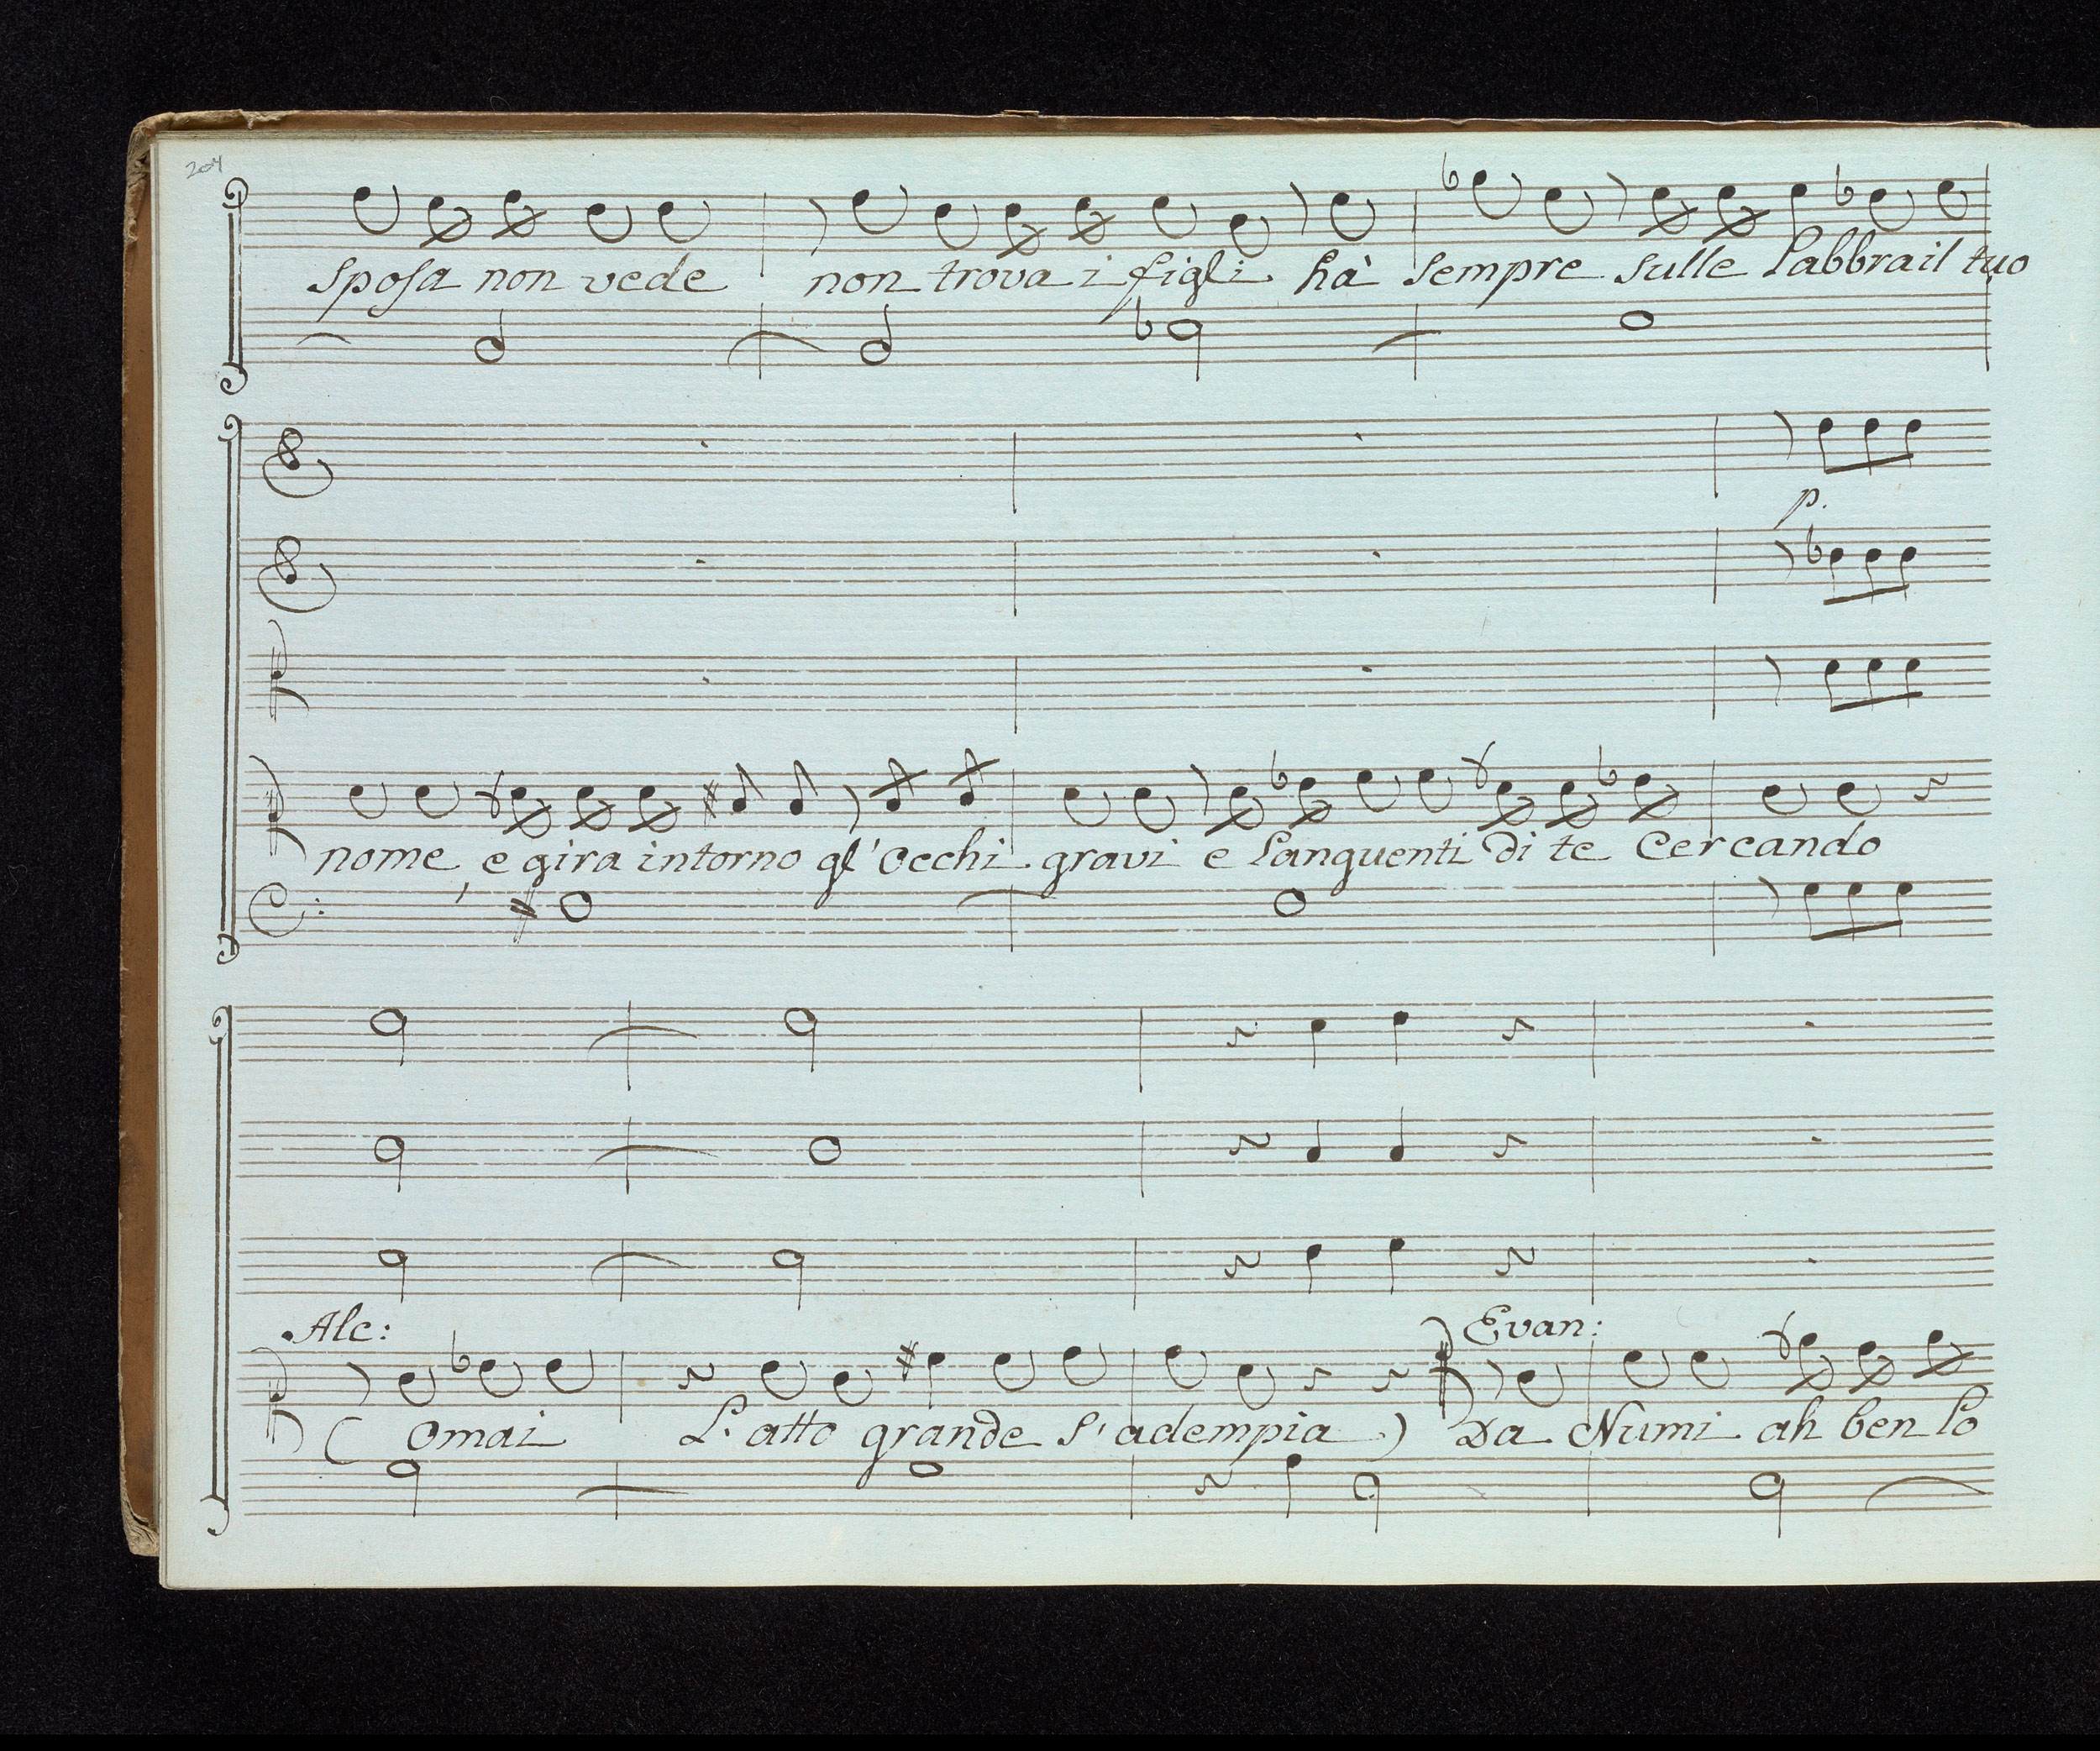 204
sposa non vede non trova i figli hà sempre sulle labbra il tuo
p.
nome e gira intorno gl'occhi gravi e languenti di te Cercando
Alc: Evan:
( Omai L'atto grande s'adempia ) Da Numi ah ben lo